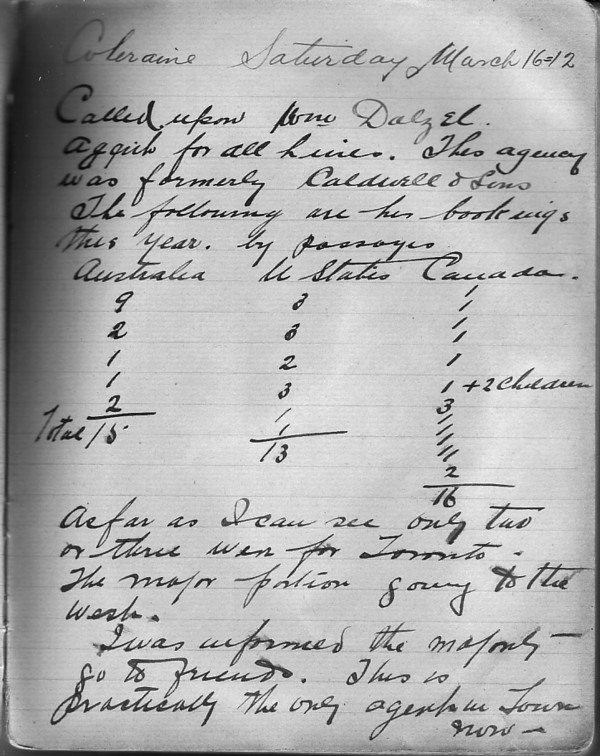 Coleraine Saturday March 16=12
Called upon Wm Dalzel.
Agent for all lines. This agency
was formerly Caldwell & Sons
The following are his bookings
this year. by passages
Australia U States Canada.
9 3 1
2 3 1
1 2 1
1 3 1 + 2 Children
2 1 3
Total 15 1
13
2
16
As far as I can see only two
or three were for Toronto.
The major portion going to the
West.
I was informed the majority
go to friends. This is
practically the only agent in Town
now -